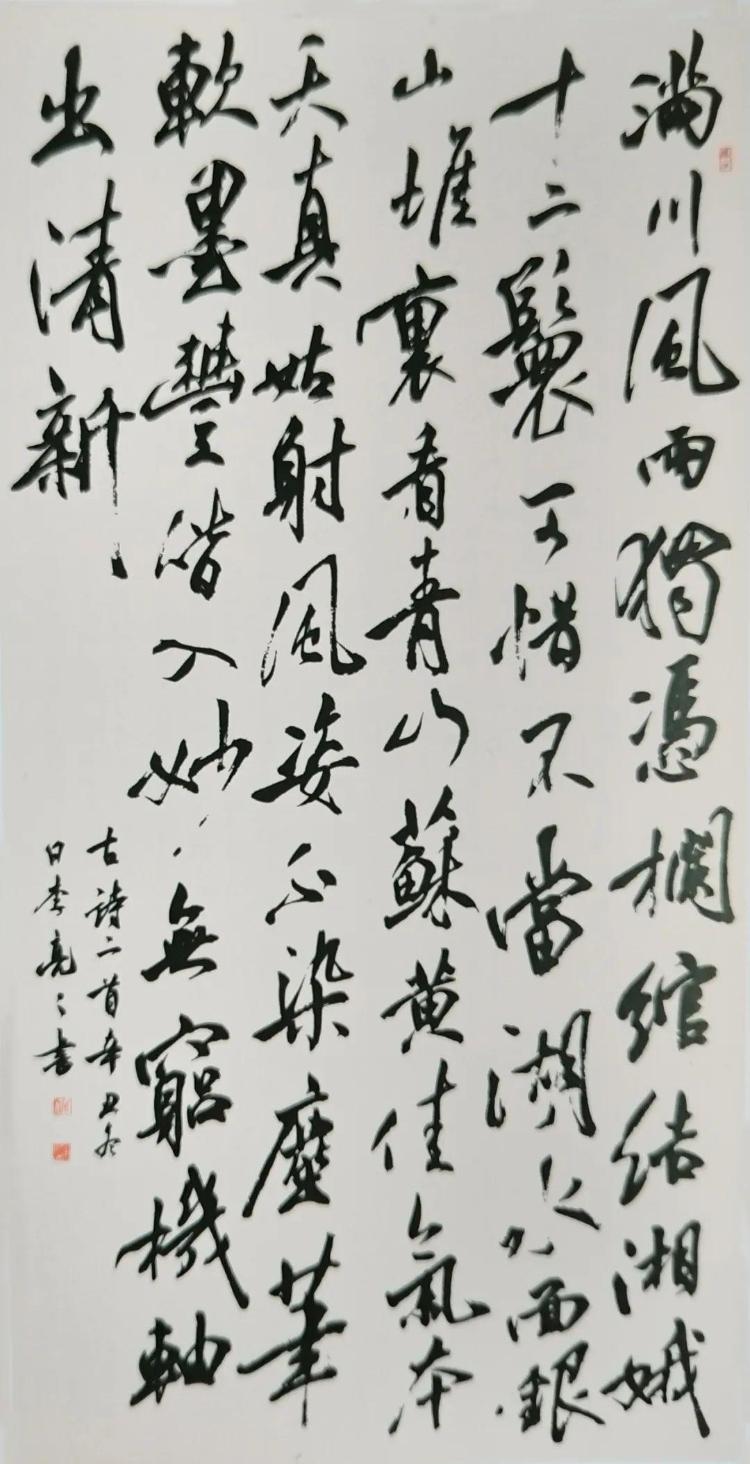 滿川風雨獨憑欄綰結湘娥
十二鬟可惜不當湖水面銀
山堆裏看青山蘇黃佳氣本
天真姑射風姿不染塵筆
軟墨豐偕入妙無窮機軸
出清新
古詩二首辛丑冬
日李亮々書